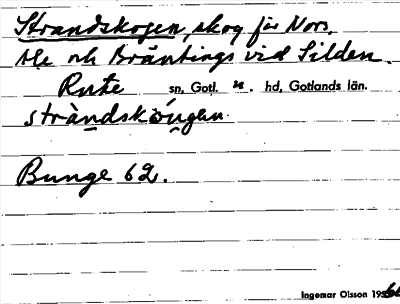 Strandskogen, skog för Nors,
Ale och Bräntings vid Silden.
Rute sn, Gotl. n. hd, Gotlands län.
stràndskóugen
Bunge 62.
Ingemar Olsson 195